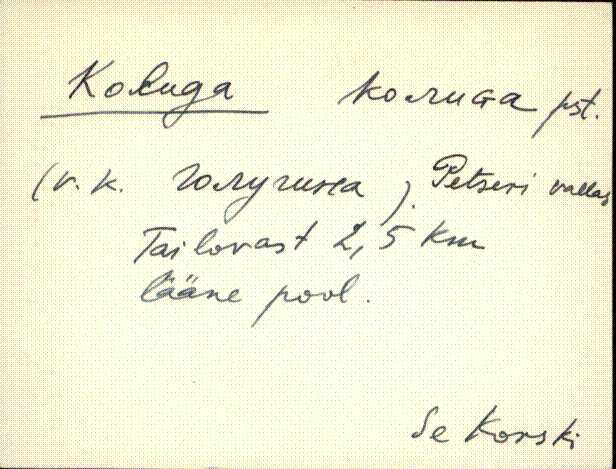 Koliuga колиGа pst.
(v.k. голугина), Petseri vallas
Tailovast 2,5 km
lääne pool.
Se Korski